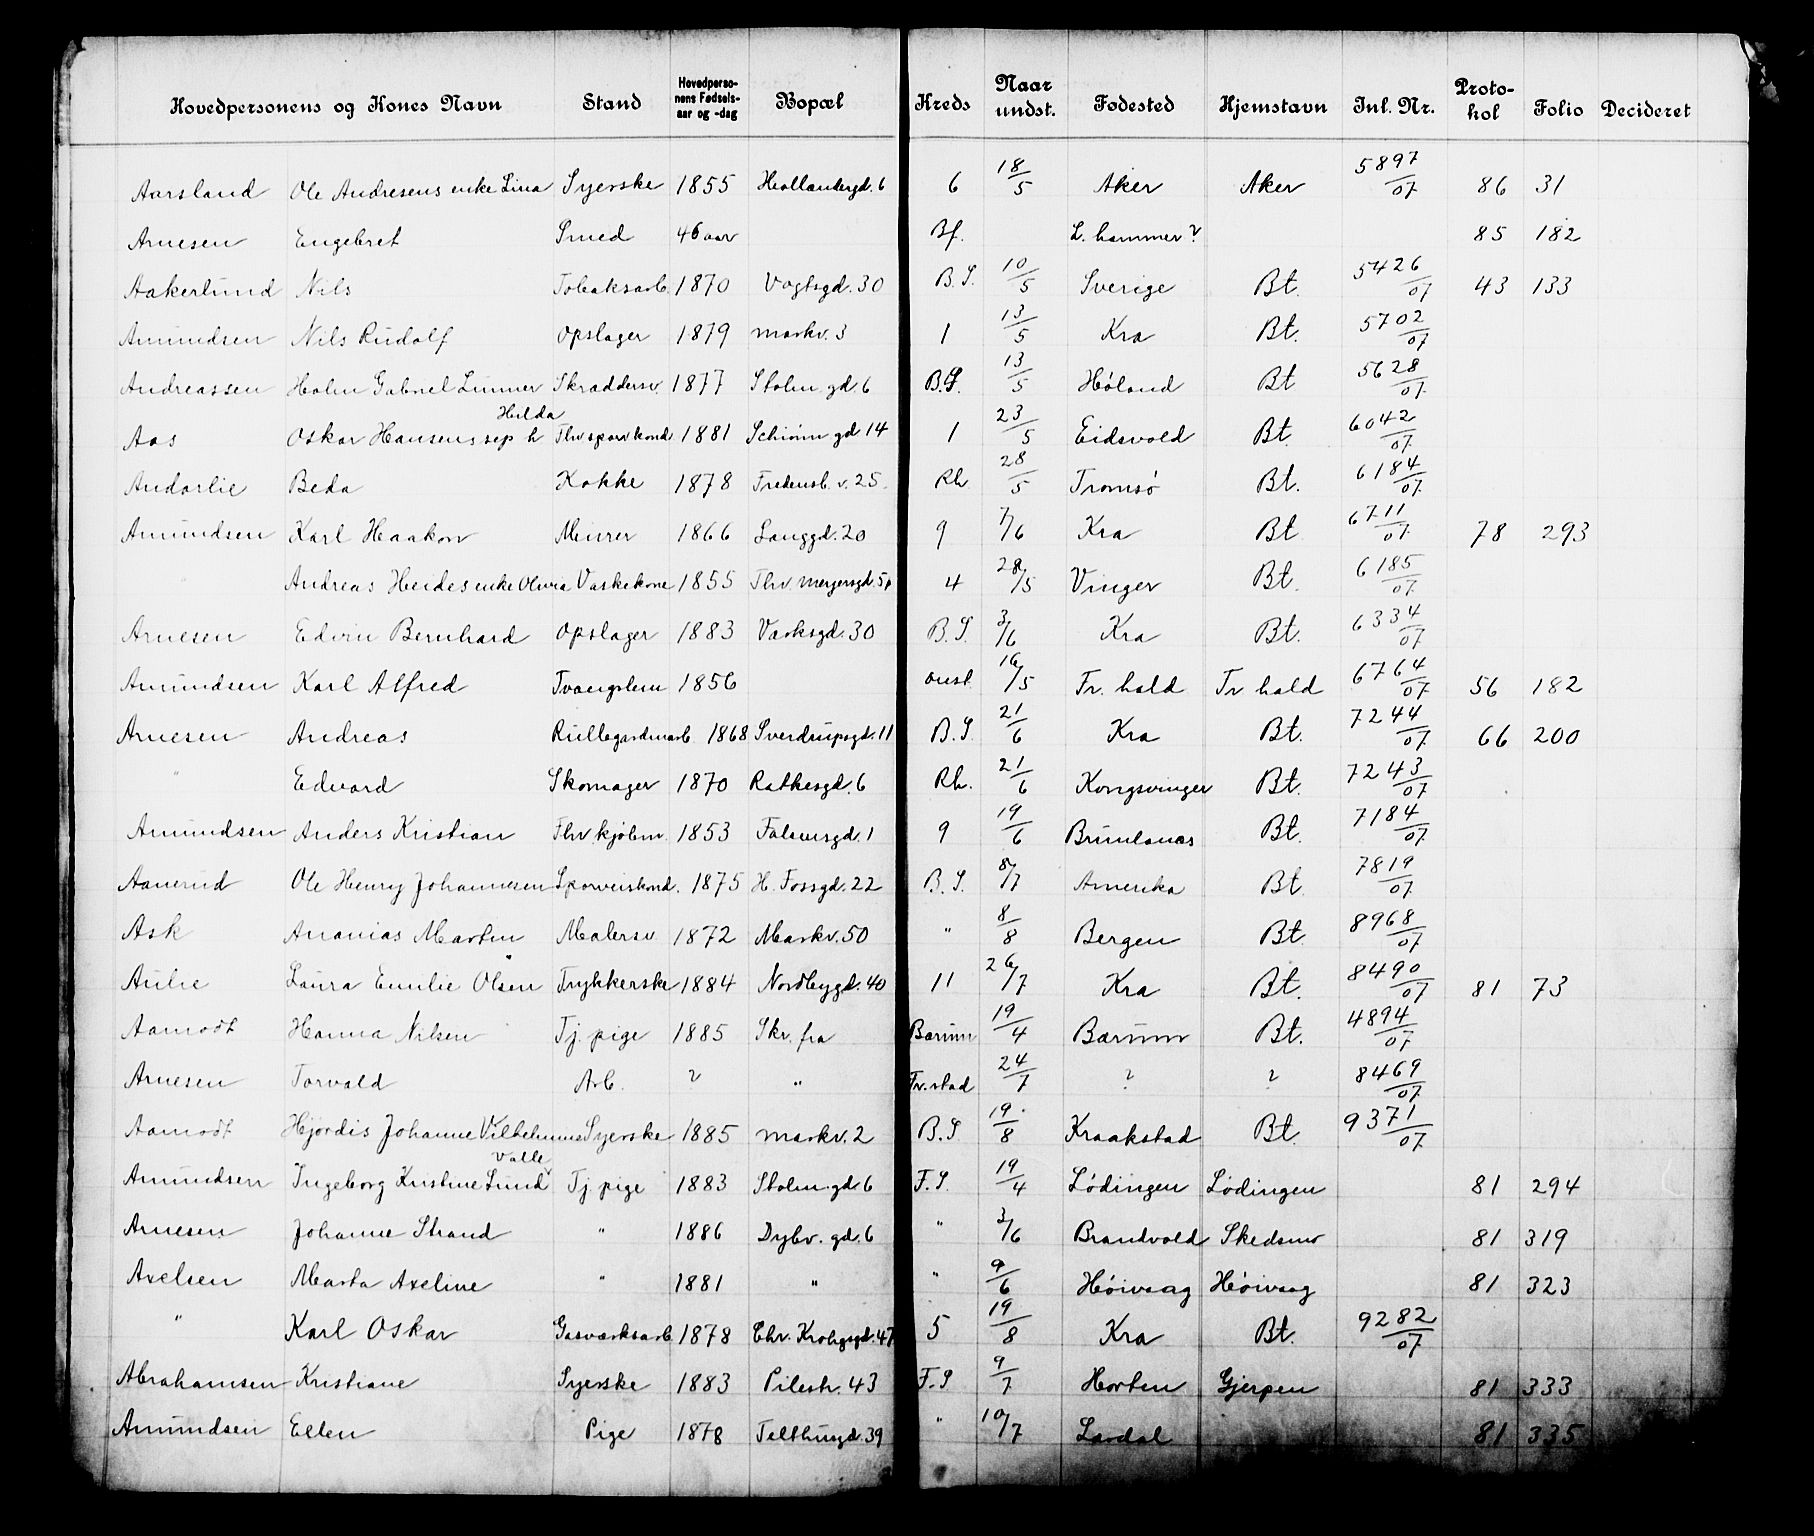 Hovedpersonens og Kones Navn Stand Hovedpersonens Fødselsaar og -dag Bopæl Kreds Naar undst. Fødested Hjemstavn Inl. Nr. Protokol Folio Decideret
Aarsland Ole Andresens enke Lina Syerske 1855 Hollændergd. 6 6 18/5 Aker Aker 5897/07 86 31
Arnesen Engebret Smed 46 aar Bf. L. hammer? 85 182
Aakerlund Nils Tobaksarb. 1870 Vogtsgd. 30 B.S. 10/5 Sverige Bt. 5426/07 43 133
Amundsen Nils Rudolf Opslager 1879 Markv. 3 1 13/5 Kra Bt. 5702/07
Andreassen Holm Gabriel Linner Skræddersv. 1877 Stolm. gd. 6 B.S. 13/5 Høland Bt 5628/07
Aas Oskar Hansens sep. h Hilda Thv sporv kond 1881 Schiønn gd 14 1 23/5 Eidsvold Bt. 6042/07
Andorlie Beda Kokke 1878 Fredensb. v. 25 Rh 28/5 Tromsø Bt. 6184/07
Amundsen Karl Haakon Murer 1866 Langgd. 20 9 7/6 Kra Bt 6711/07 78 293
" Andreas Heides enke Olivia Vaskekone 1855 Thv. Meyersgd. 5 4 28/5 Vinger Bt. 6185/07
Arnesen Edvin Bernhard Opslager 1883 Værksgd. 30 B.S. 3/6 Kra Bt. 6334/07
Amundsen Karl Alfred Tvangslem 1856 16/5 Fr. hald Fr hald 6764/07 56 182
Arnesen Andreas Rullegardinarb 1868 Sverdrupsgd. 11 B.S. 21/6 Kra Bt. 7244/07 66 200
" Edvard Skomager 1870 Rathkesgd. 6 Rh. 21/6 Kongsvinger Bt. 7243/07
Amundsen Anders Kristian Thv kjøbm. 1853 Falsensgd. 1 9 19/6 Brunlanæs Bt. 7184/07
Aanerud Ole Henry Johannesen Sporveiskond. 1875 H. Fossgd. 22 B.S. 8/7 Amerika Bt. 7819/07
Ask Ananias Martin Malersv. 1872 Markv. 50 " 8/8 Bergen Bt. 8968/07
Aulie Laura Emilie Olsen Trykkerske 1884 Nordbygd. 40 11 26/7 Kra Bt. 8490/07 81 73
Aamodt Hanna Nilsen Tj. pige 1885 Skr. fra Bærum 19/4 Bærum Bt. 4894/07
Arnesen Torvald Arb. ? " Fr. stad 24/7 ? ? 8469/07
Aamodt Hjørdis Johanne Vilhelmine Syerske 1885 Markv. 2 B.S 19/8 Kraakstad Bt. 9371/07
Amundsen Ingeborg Kristine Lund Valle Tj. pige 1883 Stolm. gd 6 F.S. 19/4 Lødingen Lødingen 81 294
Arnesen Johanne Strand " 1886 Dybv. gd. 6 " 3/6 Brandvold Skedsmo 81 319
Axelsen Marta Axeline " 1881 " " 9/6 Høivaag Høivaag 81 323
" Karl Oskar Gasværksarb 1878 Chr. Krohgsgd. 47 5 19/8 Kra Bt. 9282/07
Abrahamsen Kristiane Syerske 1883 Pilestr. 43 F.S 9/7 Horten Gjerpen 81 333
Amundsen Ellen Pige 1878 Telthusgd. 39 " 10/7 Lardal 81 335